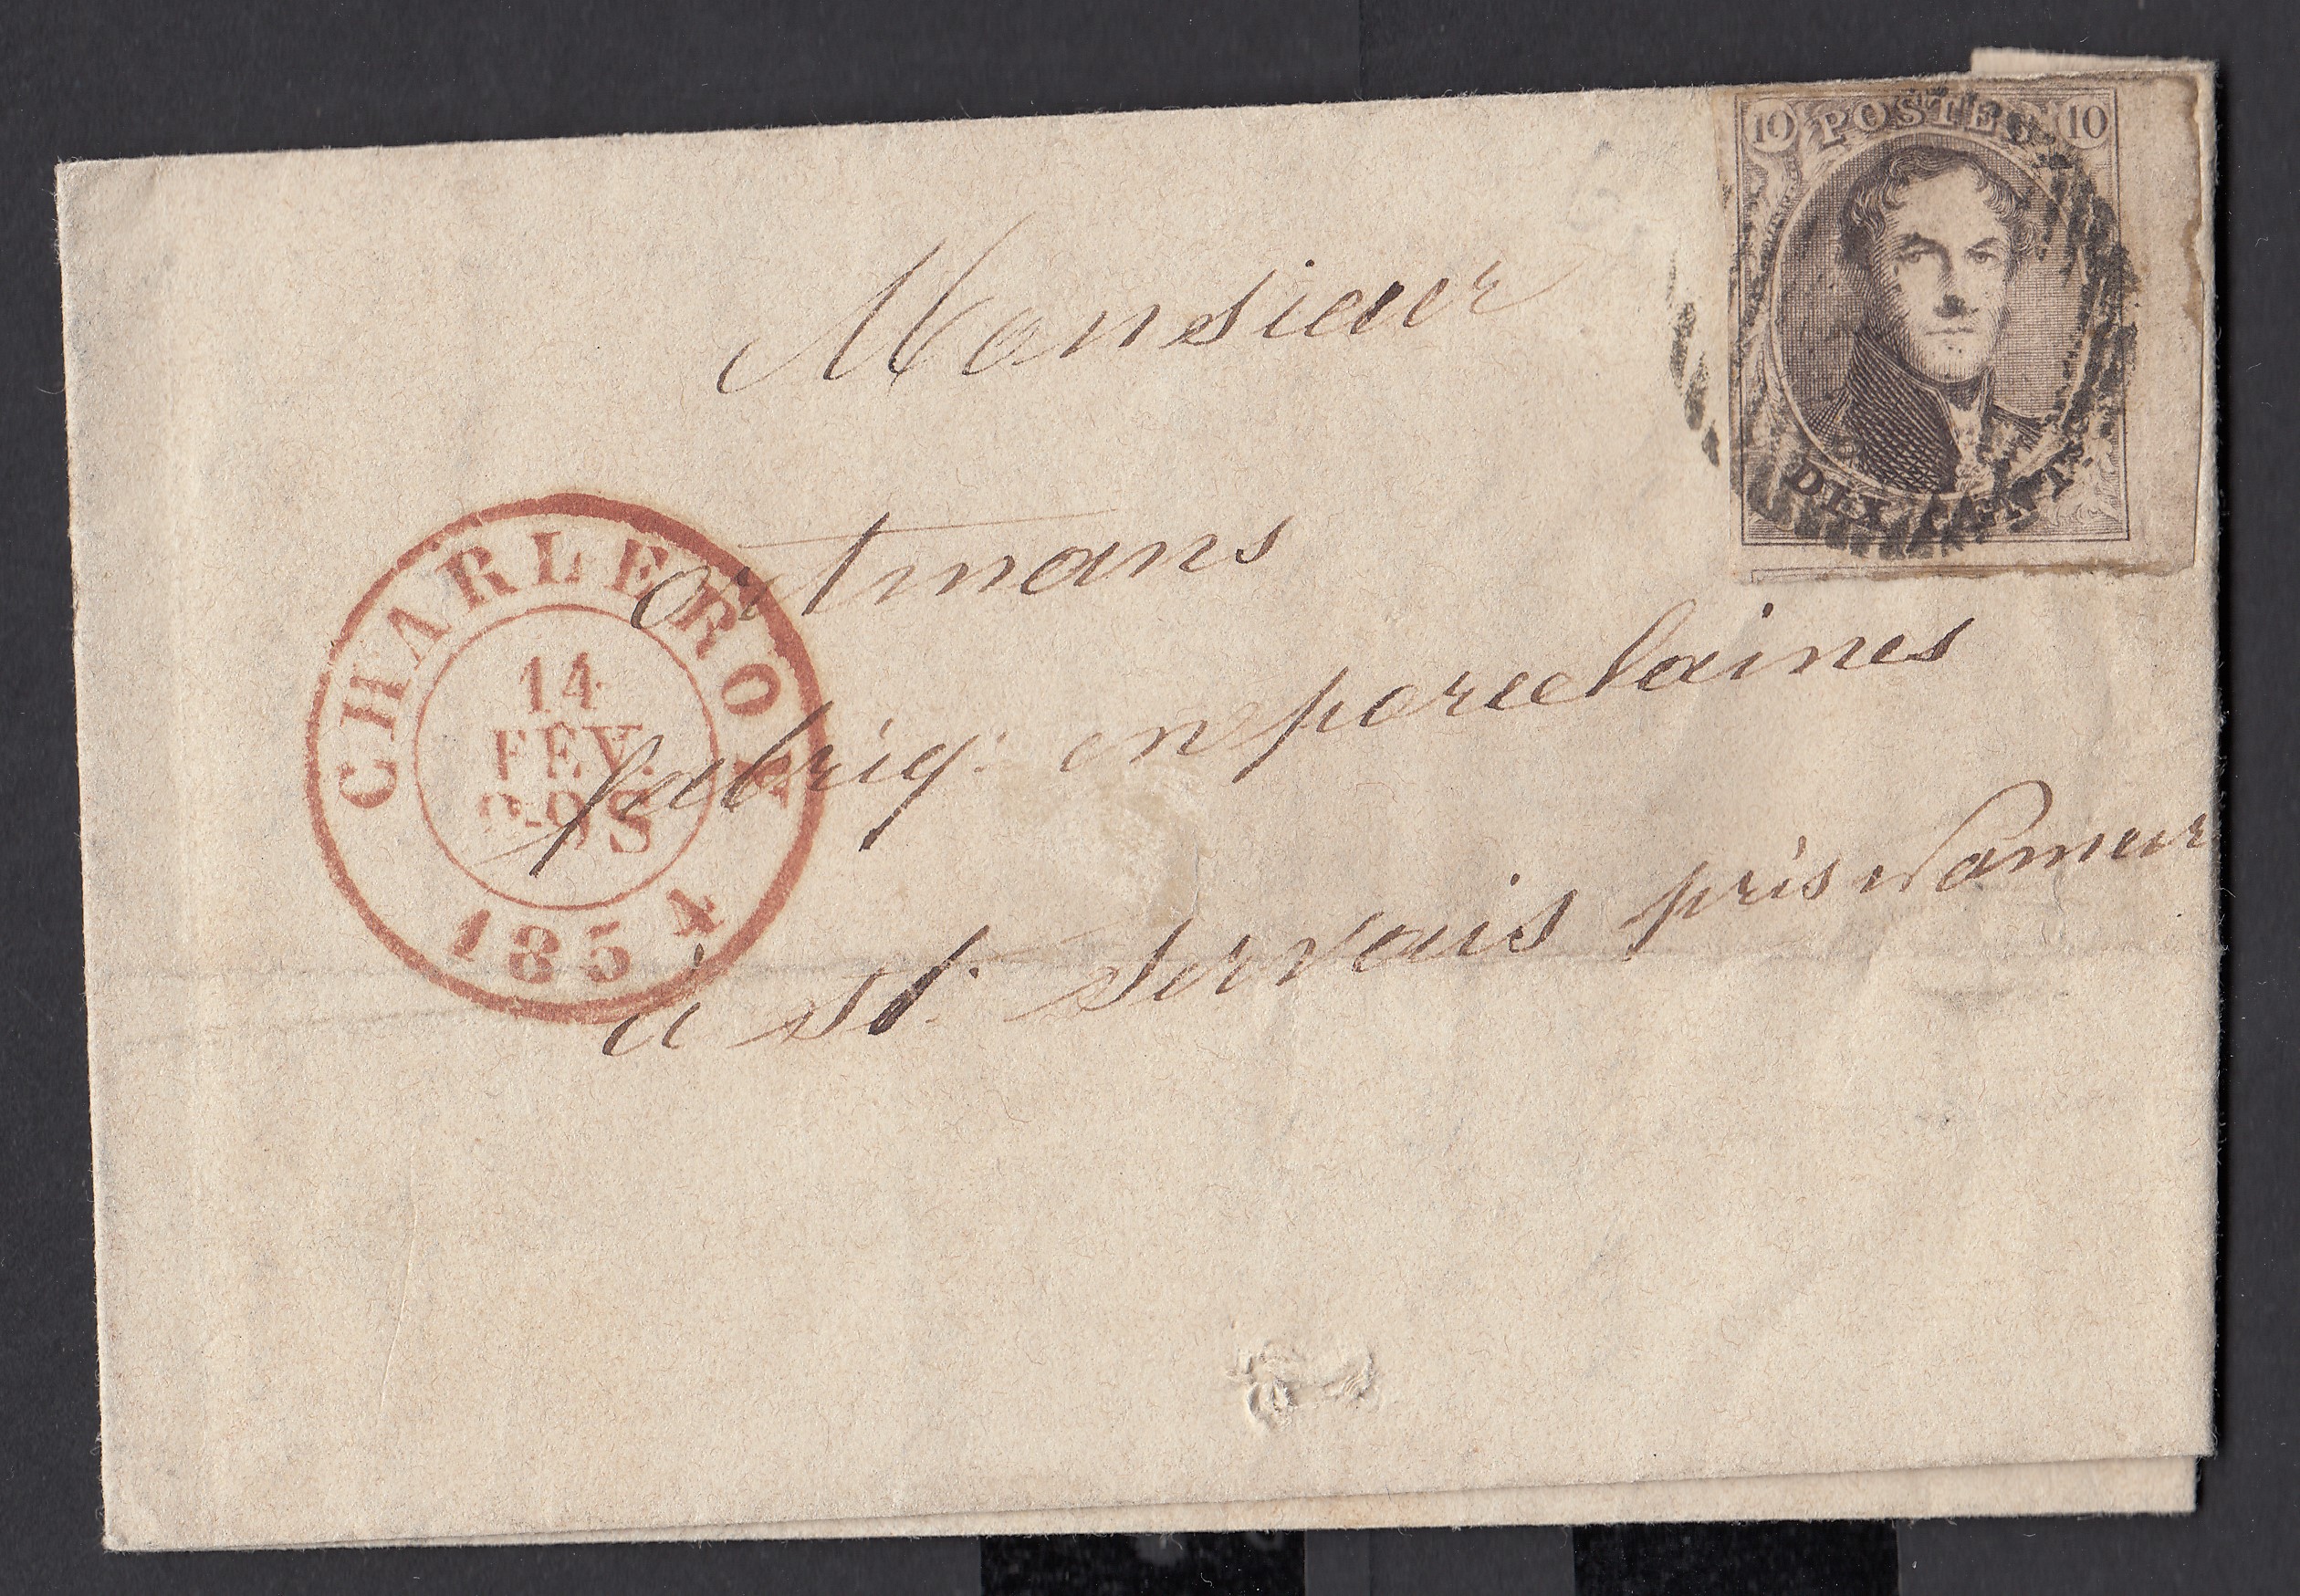 10 POSTES 10
DIX CENTS
Monsieur
ortmans
fabriq. en porcelaines
à st. Servais près Namur
CHARLEROY
14
FÉV.
S
1854